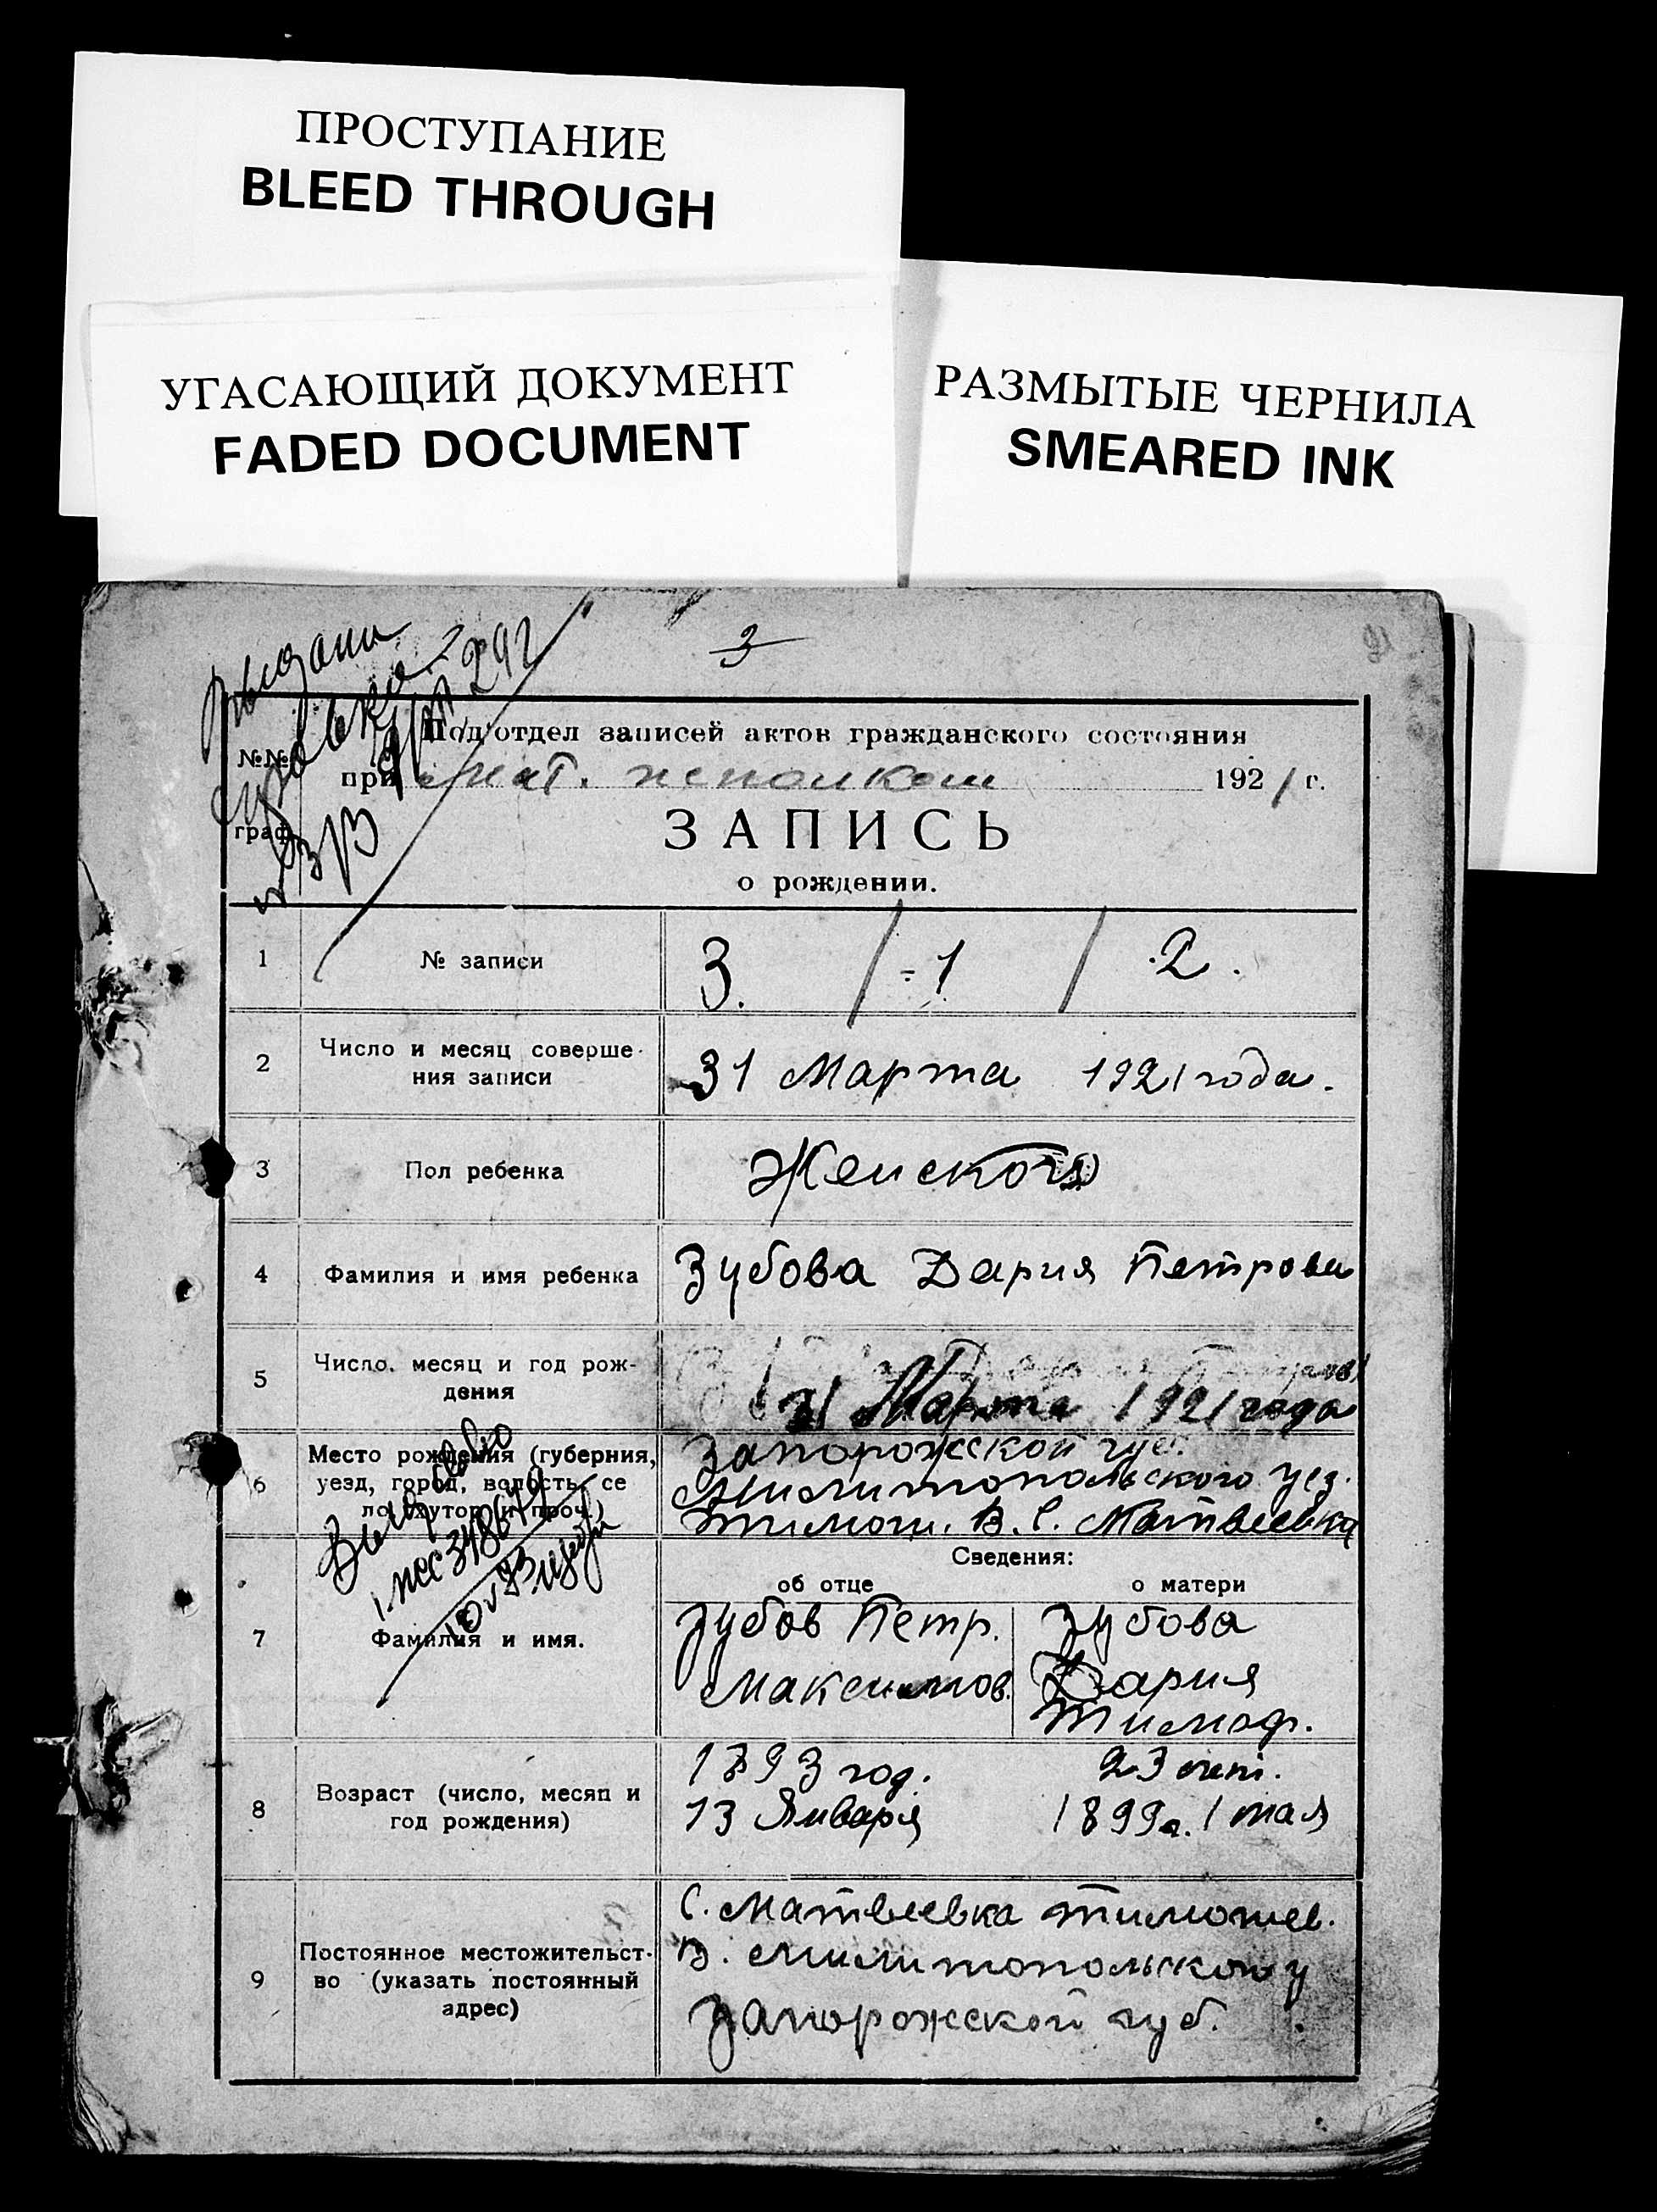 ПРОСТУПАНИЕ
BLEED THROUGH
УГАСАЮЩИЙ ДОКУМЕНТ
FADED DOCUMENT
РАЗМЫТЫЕ ЧЕРНИЛА
SMEARED INK
3
Выдана
№№
граф
Под'отдел записей актов гражданского состояния
при Мат. исполком 1921 г.
ЗАПИСЬ
о рождении.
1 № записи 3. / 1 / 2.
2 Число и месяц соверше-
ния записи
31 Марта 1921 года.
3 Пол ребенка Женского
4 Фамилия и имя ребенка Зубова Дария Петрова
5 Число, месяц и год рож-
дения
31 Марта 1921 года
6 Место рождения (губерния,
уезд, город, волость, се
ло, хутор и проч.)
Запорожской губ.
Милитопольского уез.
Тимош. В. С. Матвеевка
Сведения:
об отце о матери
7 Фамилия и имя.
Зубов Петр.
Максимов.
Зубова
Дария
Тимоф.
8 Возраст (число, месяц и
год рождения)
1893 год.
13 Января
23 лет.
1899 г. 1 мая
9 Постоянное местожительст-
во (указать постоянный
адрес)
С. Матвеевка Тимошев.
В. Милитопольского у
Запорожской губ.